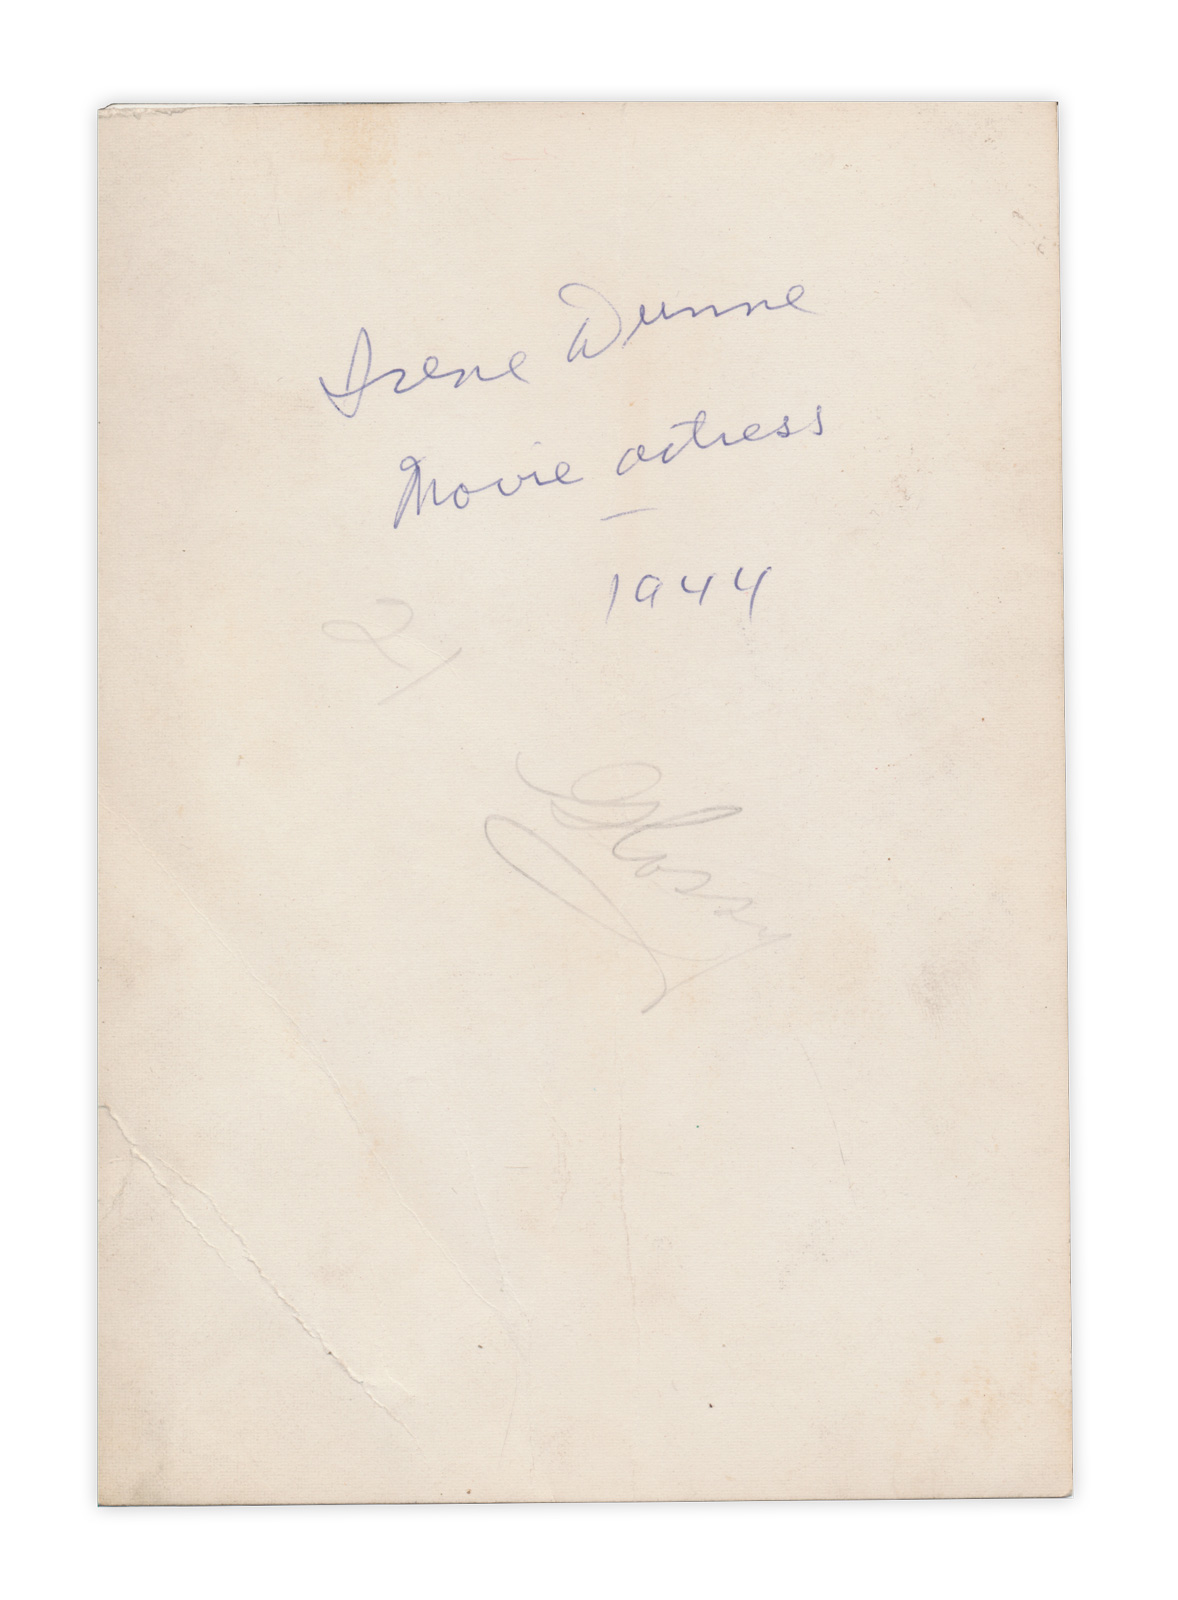 Irene Dunne
Movie actress
—
1944
Glossy